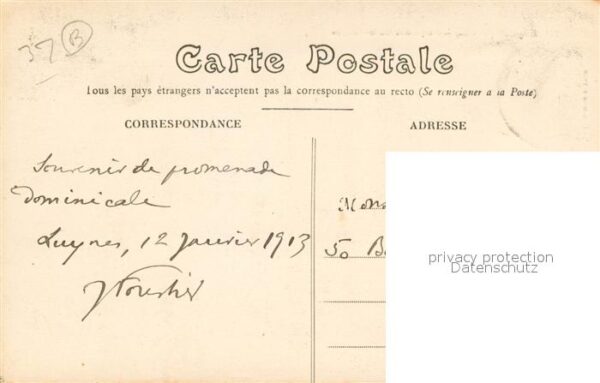 37 B
Carte Postale
Tous les pays étrangers n'acceptent pas la correspondance au recto (Se renseigner à la Poste)
CORRESPONDANCE
ADRESSE
Souvenir de promenade
Dominicale
Luynes, 12 Janvier 1913
Mons
50 B
privacy protection
Datenschutz